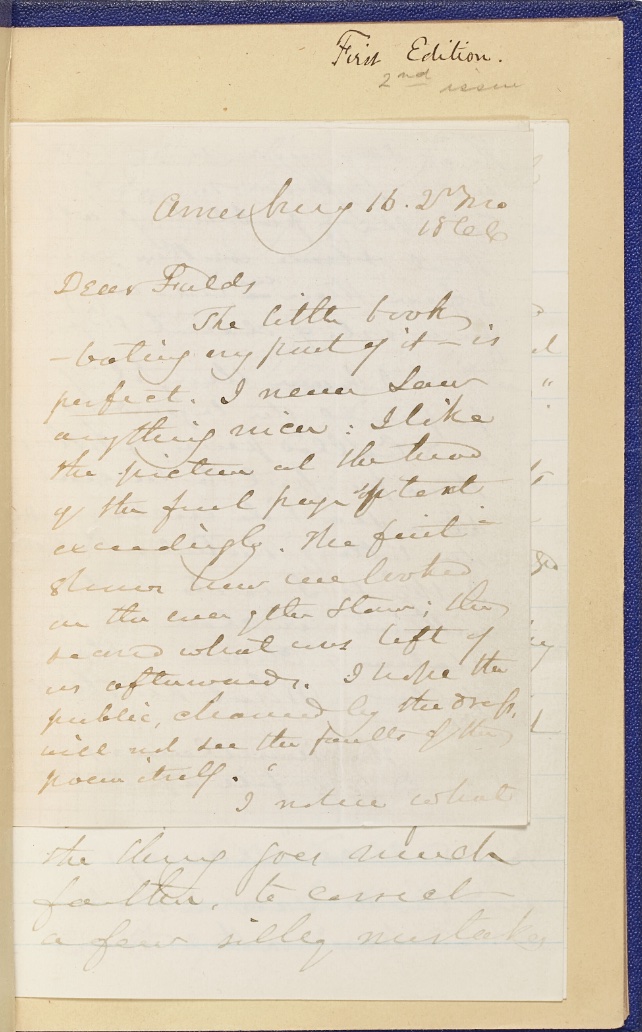 First Edition.
2nd issue
Amesbury 16. 2nd Mo
1866
Dear Fields
The little book
– bating my part of it – is
perfect. I never saw
anything nicer: I like
the picture at the head
of the first page of text
exceedingly. The first
shows how we looked
on the eve of the storm; the
second what was left of
us afterwards. I hope the
public, charmed by the dress,
will not see the faults of the
poem itself.
I notice what
the thing goes much
farther, to correct
a few silly mistakes